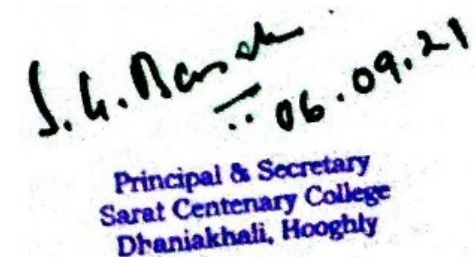 S. G. Basak
06.09.21
Principal & Secretary
Sarat Centenary College
Dhaniakhali, Hooghly